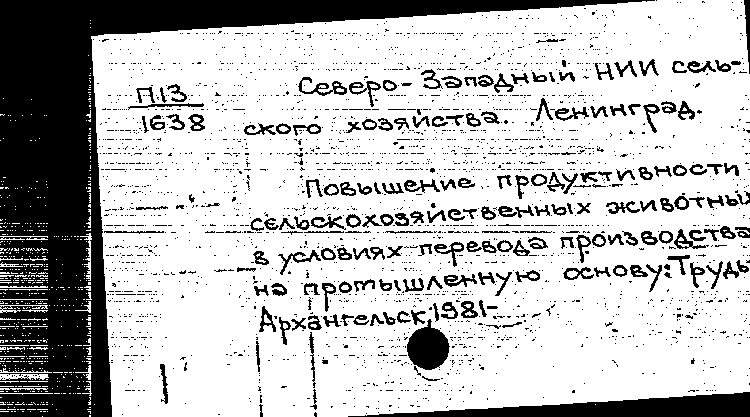 П13
1638
Северо-Западный НИИ сель-
ского хозяйства. Ленинград.
Повышение продуктивности
сельскохозяйственных животных
в условиях перевода производства
на промышленную основу: Труды
Архангельск, 1981-